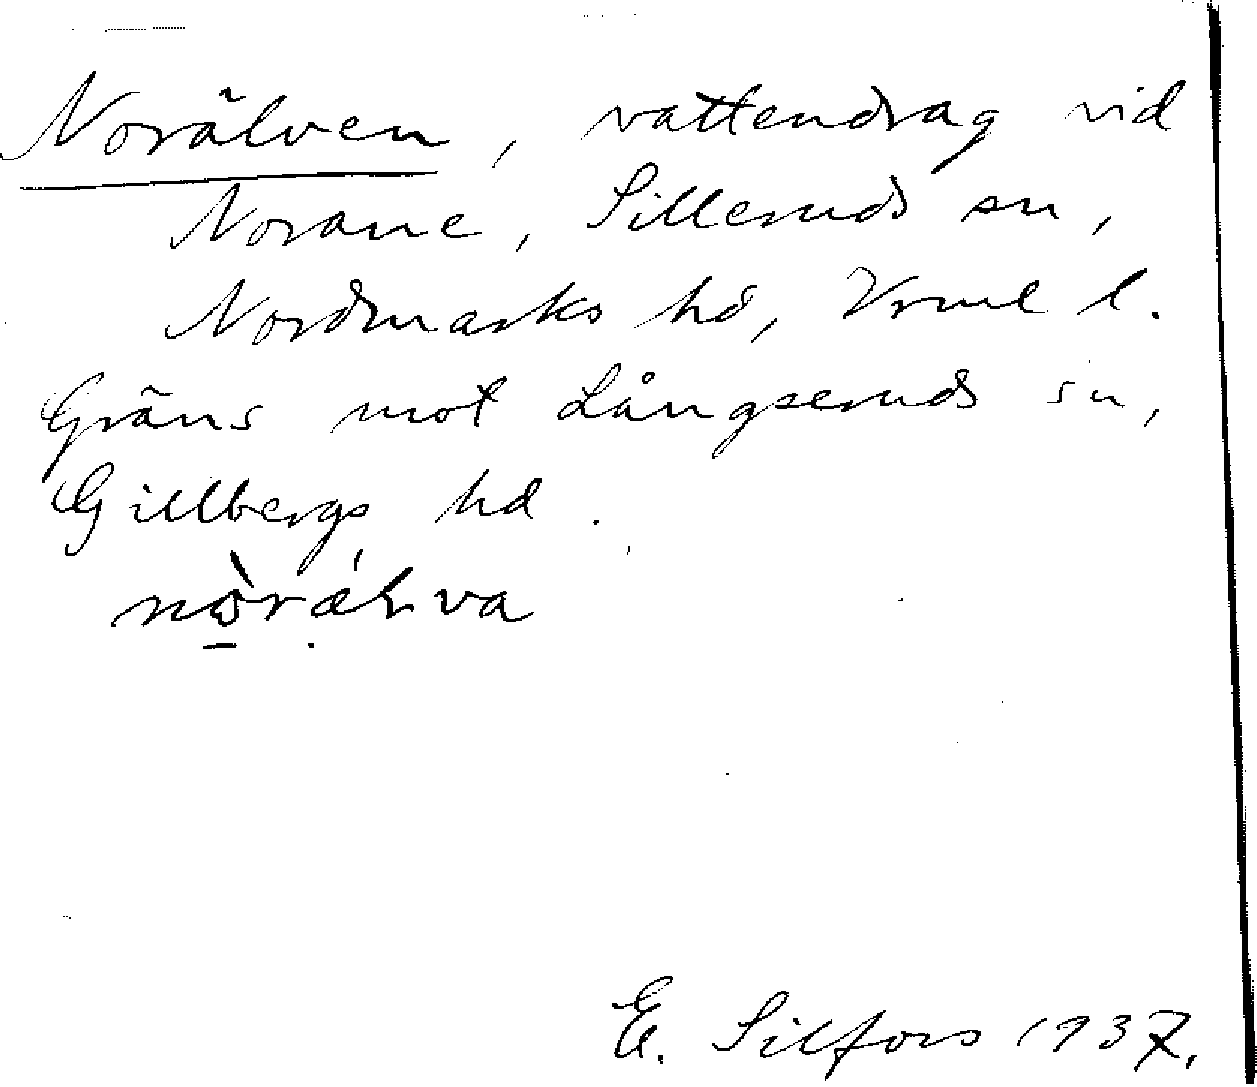 Norälven, vattendrag vid
Norane, Silleruds sn,
Nordmarks hd, Vrml l.
Gräns mot Långseruds sn,
Gillbergs hd.
E. Silfors 1937.